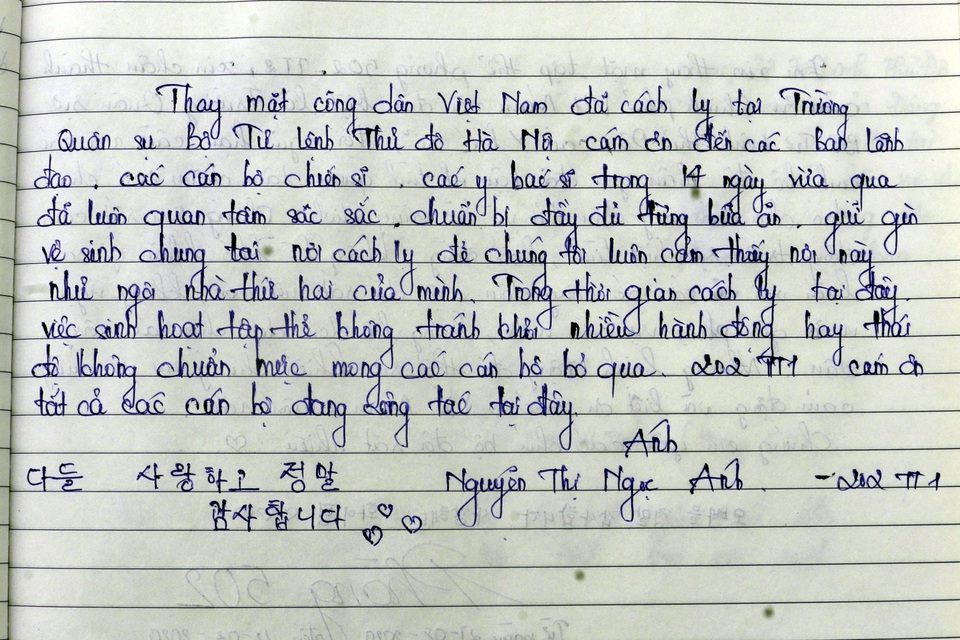 Thay mặt công dân Việt Nam đã cách ly tại Trường
Quân sự Bộ Tư lệnh Thủ đô Hà Nội cám ơn đến các Ban lãnh
đạo, các cán bộ chiến sĩ, các y bác sĩ trong 14 ngày vừa qua
đã luôn quan tâm sâu sắc, chuẩn bị đầy đủ từng bữa ăn, giữ gìn
vệ sinh chung tại nơi cách ly để chúng tôi luôn cảm thấy nơi này
như ngôi nhà thứ hai của mình. Trong thời gian cách ly tại đây.
việc sinh hoạt tập thể không tránh khỏi nhiều hành động hay thái
độ không chuẩn mực mong các cán bộ bỏ qua. 202 TT1 cám ơn
tất cả các cán bộ đang công tác tại đây.
Anh
다들 사랑하고 정말 Nguyễn Thị Ngọc Anh - 202 TT1
감사합니다